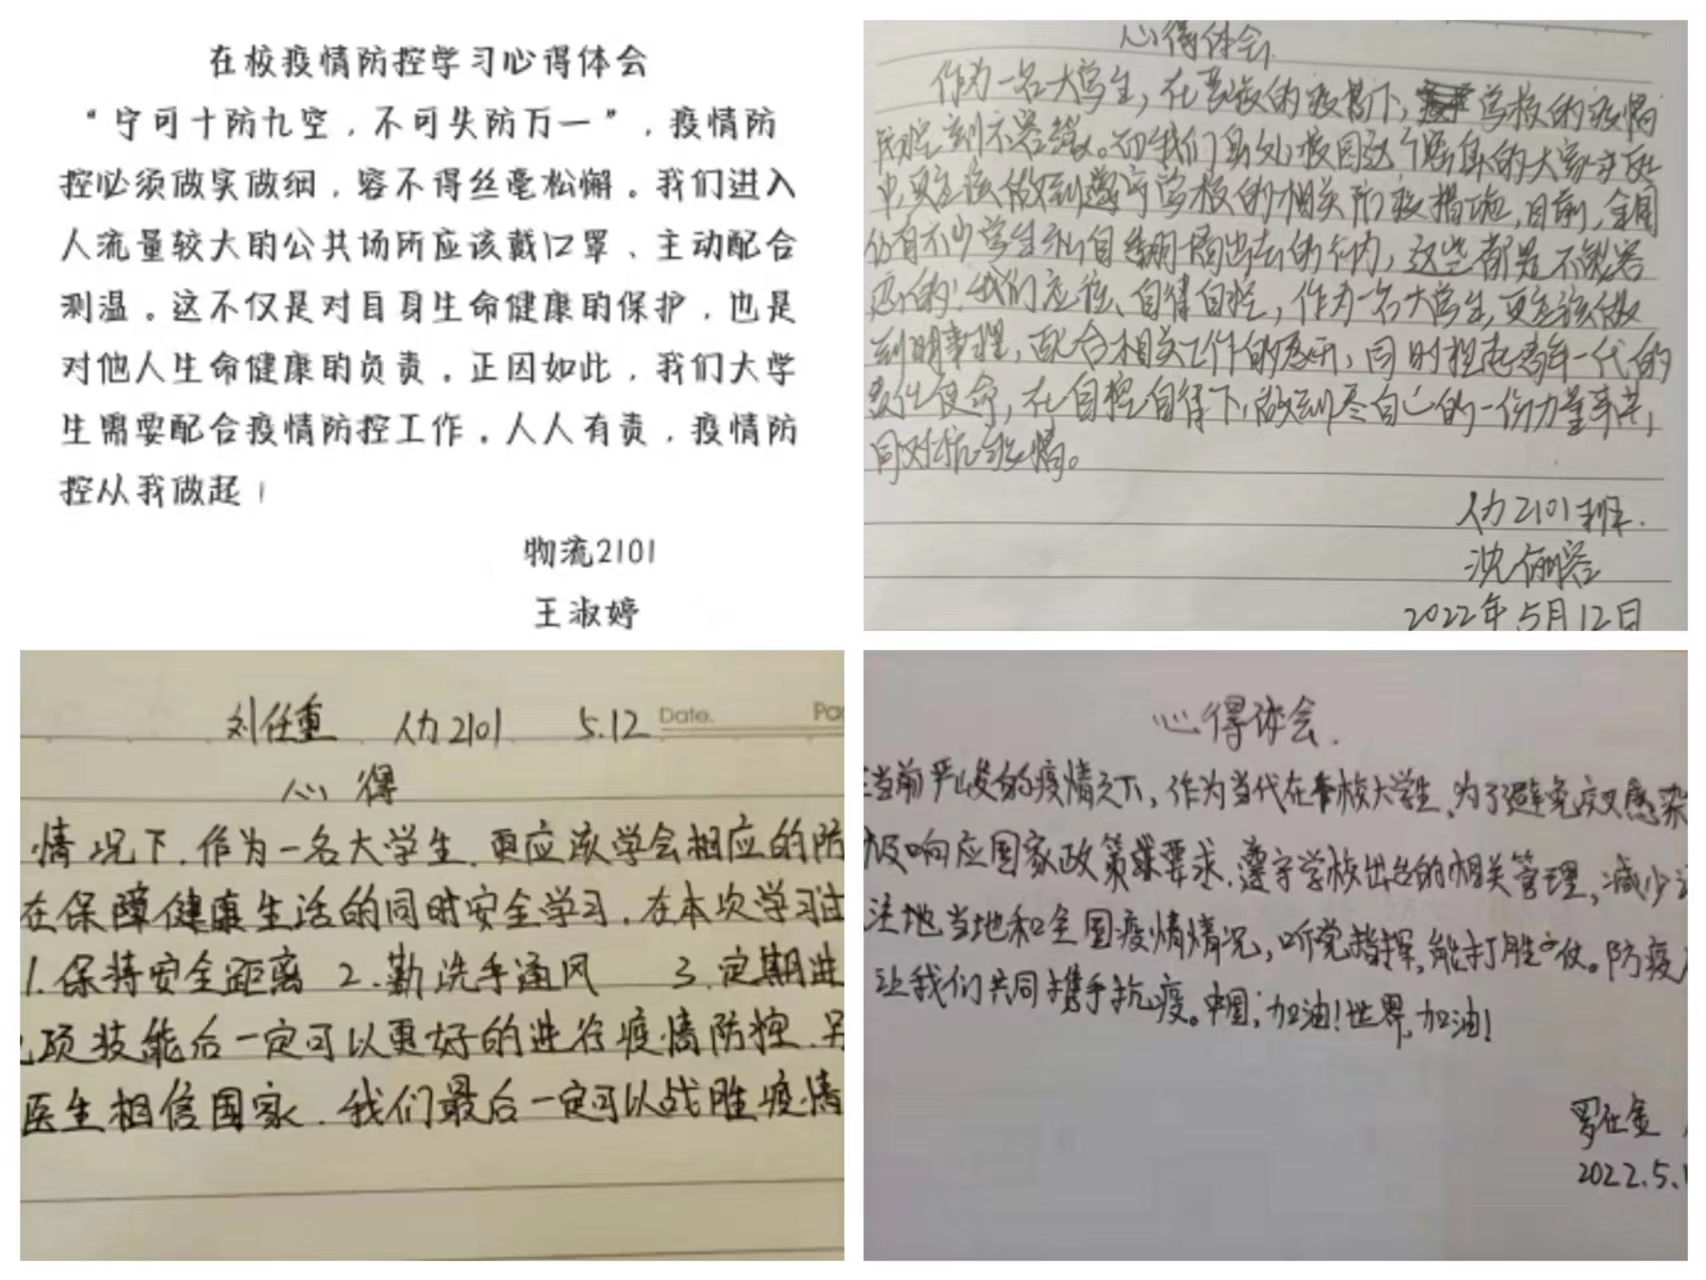 在校疫情防控学习心得体会
“宁可十防九空，不可失防万一”，疫情防
控必须做实做细，容不得丝毫松懈。我们进入
人流量较大的公共场所应该戴口罩、主动配合
测温。这不仅是对自身生命健康的保护，也是
对他人生命健康的负责。正因如此，我们大学
生需要配合疫情防控工作。人人有责，疫情防
控从我做起！
物流2101
王淑婷
心得体会
作为一名大学生，在严峻的疫情下，学校的疫情
防控刻不容缓。而我们身处校园这个集体的大家庭
中，更应该做到遵守学校的相关防疫措施，目前，全国
仍有不少学生私自翻墙出去的行为，这些都是不能容
忍的！我们应该自律自控，作为一名大学生，更应该做
到明事理，配合相关工作的展开，同时担起青年一代的
责任使命，在自控自律下，做到尽自己的一份力量来共
同对抗疫情。
人力2101班
沈俪容
2022年5月12日
刘任重 人力2101 5.12 Date.
心得
情况下，作为一名大学生，更应该学会相应的防
在保障健康生活的同时安全学习，在本次学习过
1.保持安全距离 2.勤洗手通风 3.定期进
项技能后一定可以更好的进行疫情防控，另
医生相信国家，我们最后一定可以战胜疫情
心得体会
当前严峻的疫情之下，作为当代在校大学生，为了避免交叉感染
极响应国家政策要求，遵守学校出台的相关管理，减少
注地当地和全国疫情情况，听党指挥，能打胜仗。防疫
让我们共同携手抗疫。中国，加油！世界，加油！
罗仕金
2022.5.1